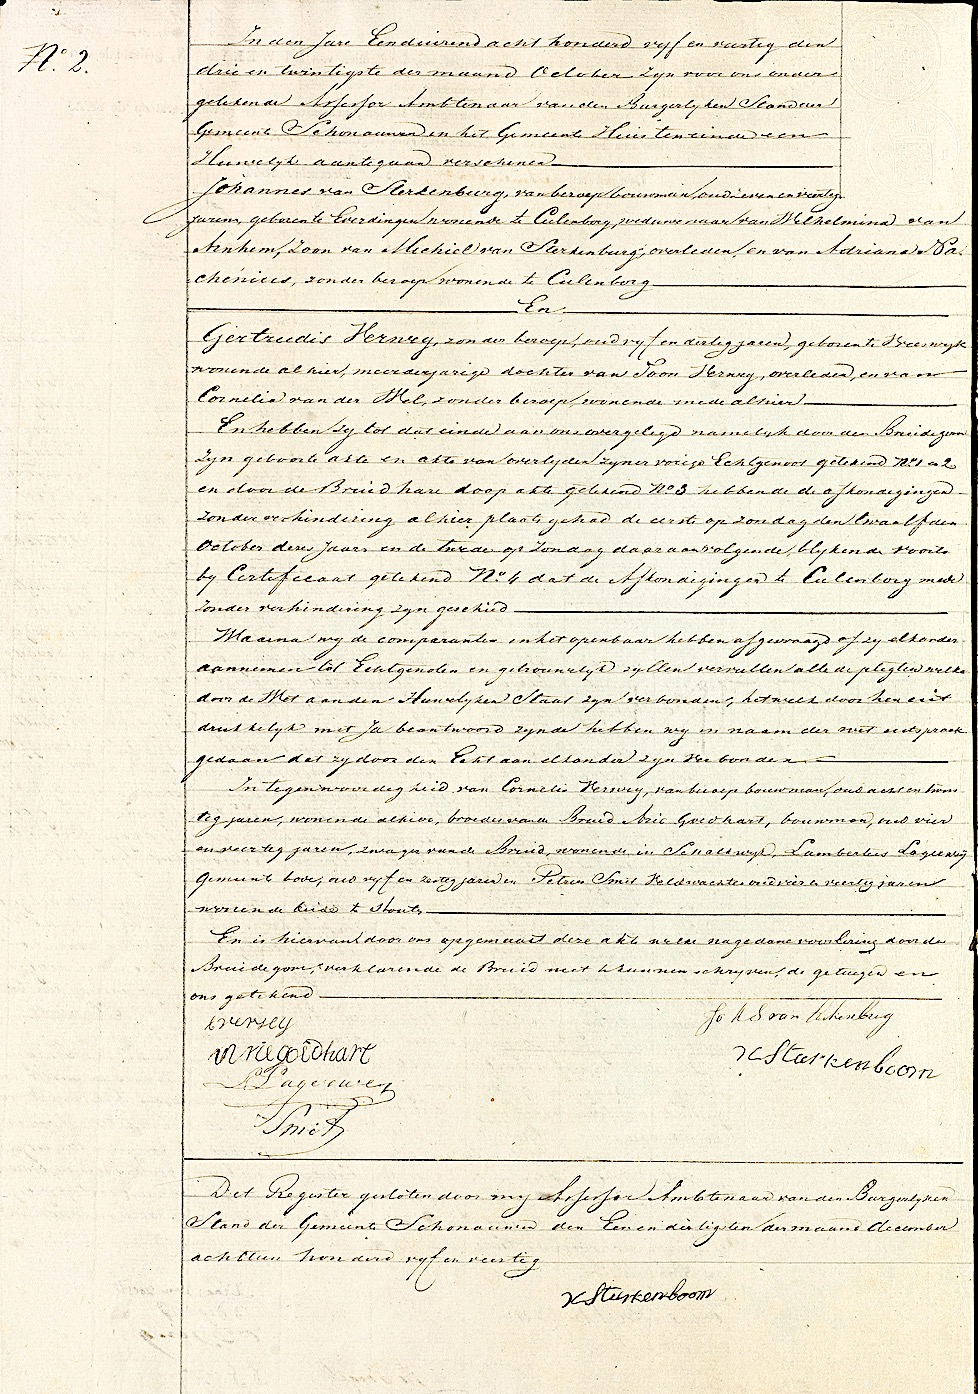 N.o 2.
In den Jare Eenduizend acht honderd vyf en veertig den
drie en twintigste der maand October zyn voor ons onder
getekende Assessor Ambtenaar van den Burgerlyken Stand der
Gemeente Schonauwen en het Gemeente Huis ten einde een
Huwelyk aantegaan verschenen
Johannes van Sterkenburg, van beroep bouwman, oud zeven en veertig
jaren, geboren te Everdingen wonende te Culenborg, weduwenaar van Wilhelmina van
Arnhem, Zoon van Michiel van Sterkenburg, overleden, en van Adriana
zonder beroep wonende te Culenborg
En
Gertrudis Verweij, zonder beroep, oud vyf en dertig jaren, geboren te Vreeswyk
wonende alhier, meerderjarige dochter van Toon Verwey, overleden, en van
Cornelia van der Wel, zonder beroep, wonende mede alhier
En hebben zy tot dat einde aan ons overgelegd namelyk door den Bruidegom
zyn geboorte akte en akte van overlyden zyner vorige Echtgenoot getekend No 1 en 2
en door de Bruid hare doop akte getekend No 3 hebbende de afkondigingen
zonder verhindering alhier plaats gehad de eerste op zondag den twaalfden
October dezes Jaars en de tweede op Zondag daaraanvolgende, blykende voorts
by Certificaat getekend No 4 dat de Afkondigingen te Culenborg mede
zonder verhindering zyn geschied
Waarna wy de comparanten in het openbaar hebben afgevraagd of zy elkander
aannemen tot Echtgenoten en getrouwelyk zullen vervullen alle de pligten welke
door de Wet aan den Huwelyken Staat zyn verbonden, hetwelk door hen uit
drukkelyk met Ja beantwoord zynde hebben wy in naam der wet uitspraak
gedaan dat zy door den Echt aan elkander zyn verbonden
In tegenwoordigheid van Cornelis Verwey, van beroep bouwman, oud acht en twin
tig jaren, wonende alhier, broeder van de Bruid Arie Goedhart, bouwman, oud vier
en veertig jaren, zwager van de Bruid, wonende in Schalkwyk, Lambertus Lagerwey
Gemeente bode, oud vyf en zestig jaren en Petrus Smit Veldwachter oud vier en veertig jaren
wonende beide te Houten
En is hiervan door ons opgemaakt deze akte welke na gedane voorlezing door de
Bruidegom, verklarende de Bruid niet te kunnen schryven, de getuigen en
ons getekend
C Verwey Joh S van Sterkenburg
Arie goedhart K Sturkenboom
L Lagerwey
P Smit
Dit Register gesloten door my Assessor Ambtenaar van den Burgerlyken
Stand der Gemeente Schonauwen den Een en dertigsten der maand December
achttien honderd vyf en veertig
K Sturkenboom